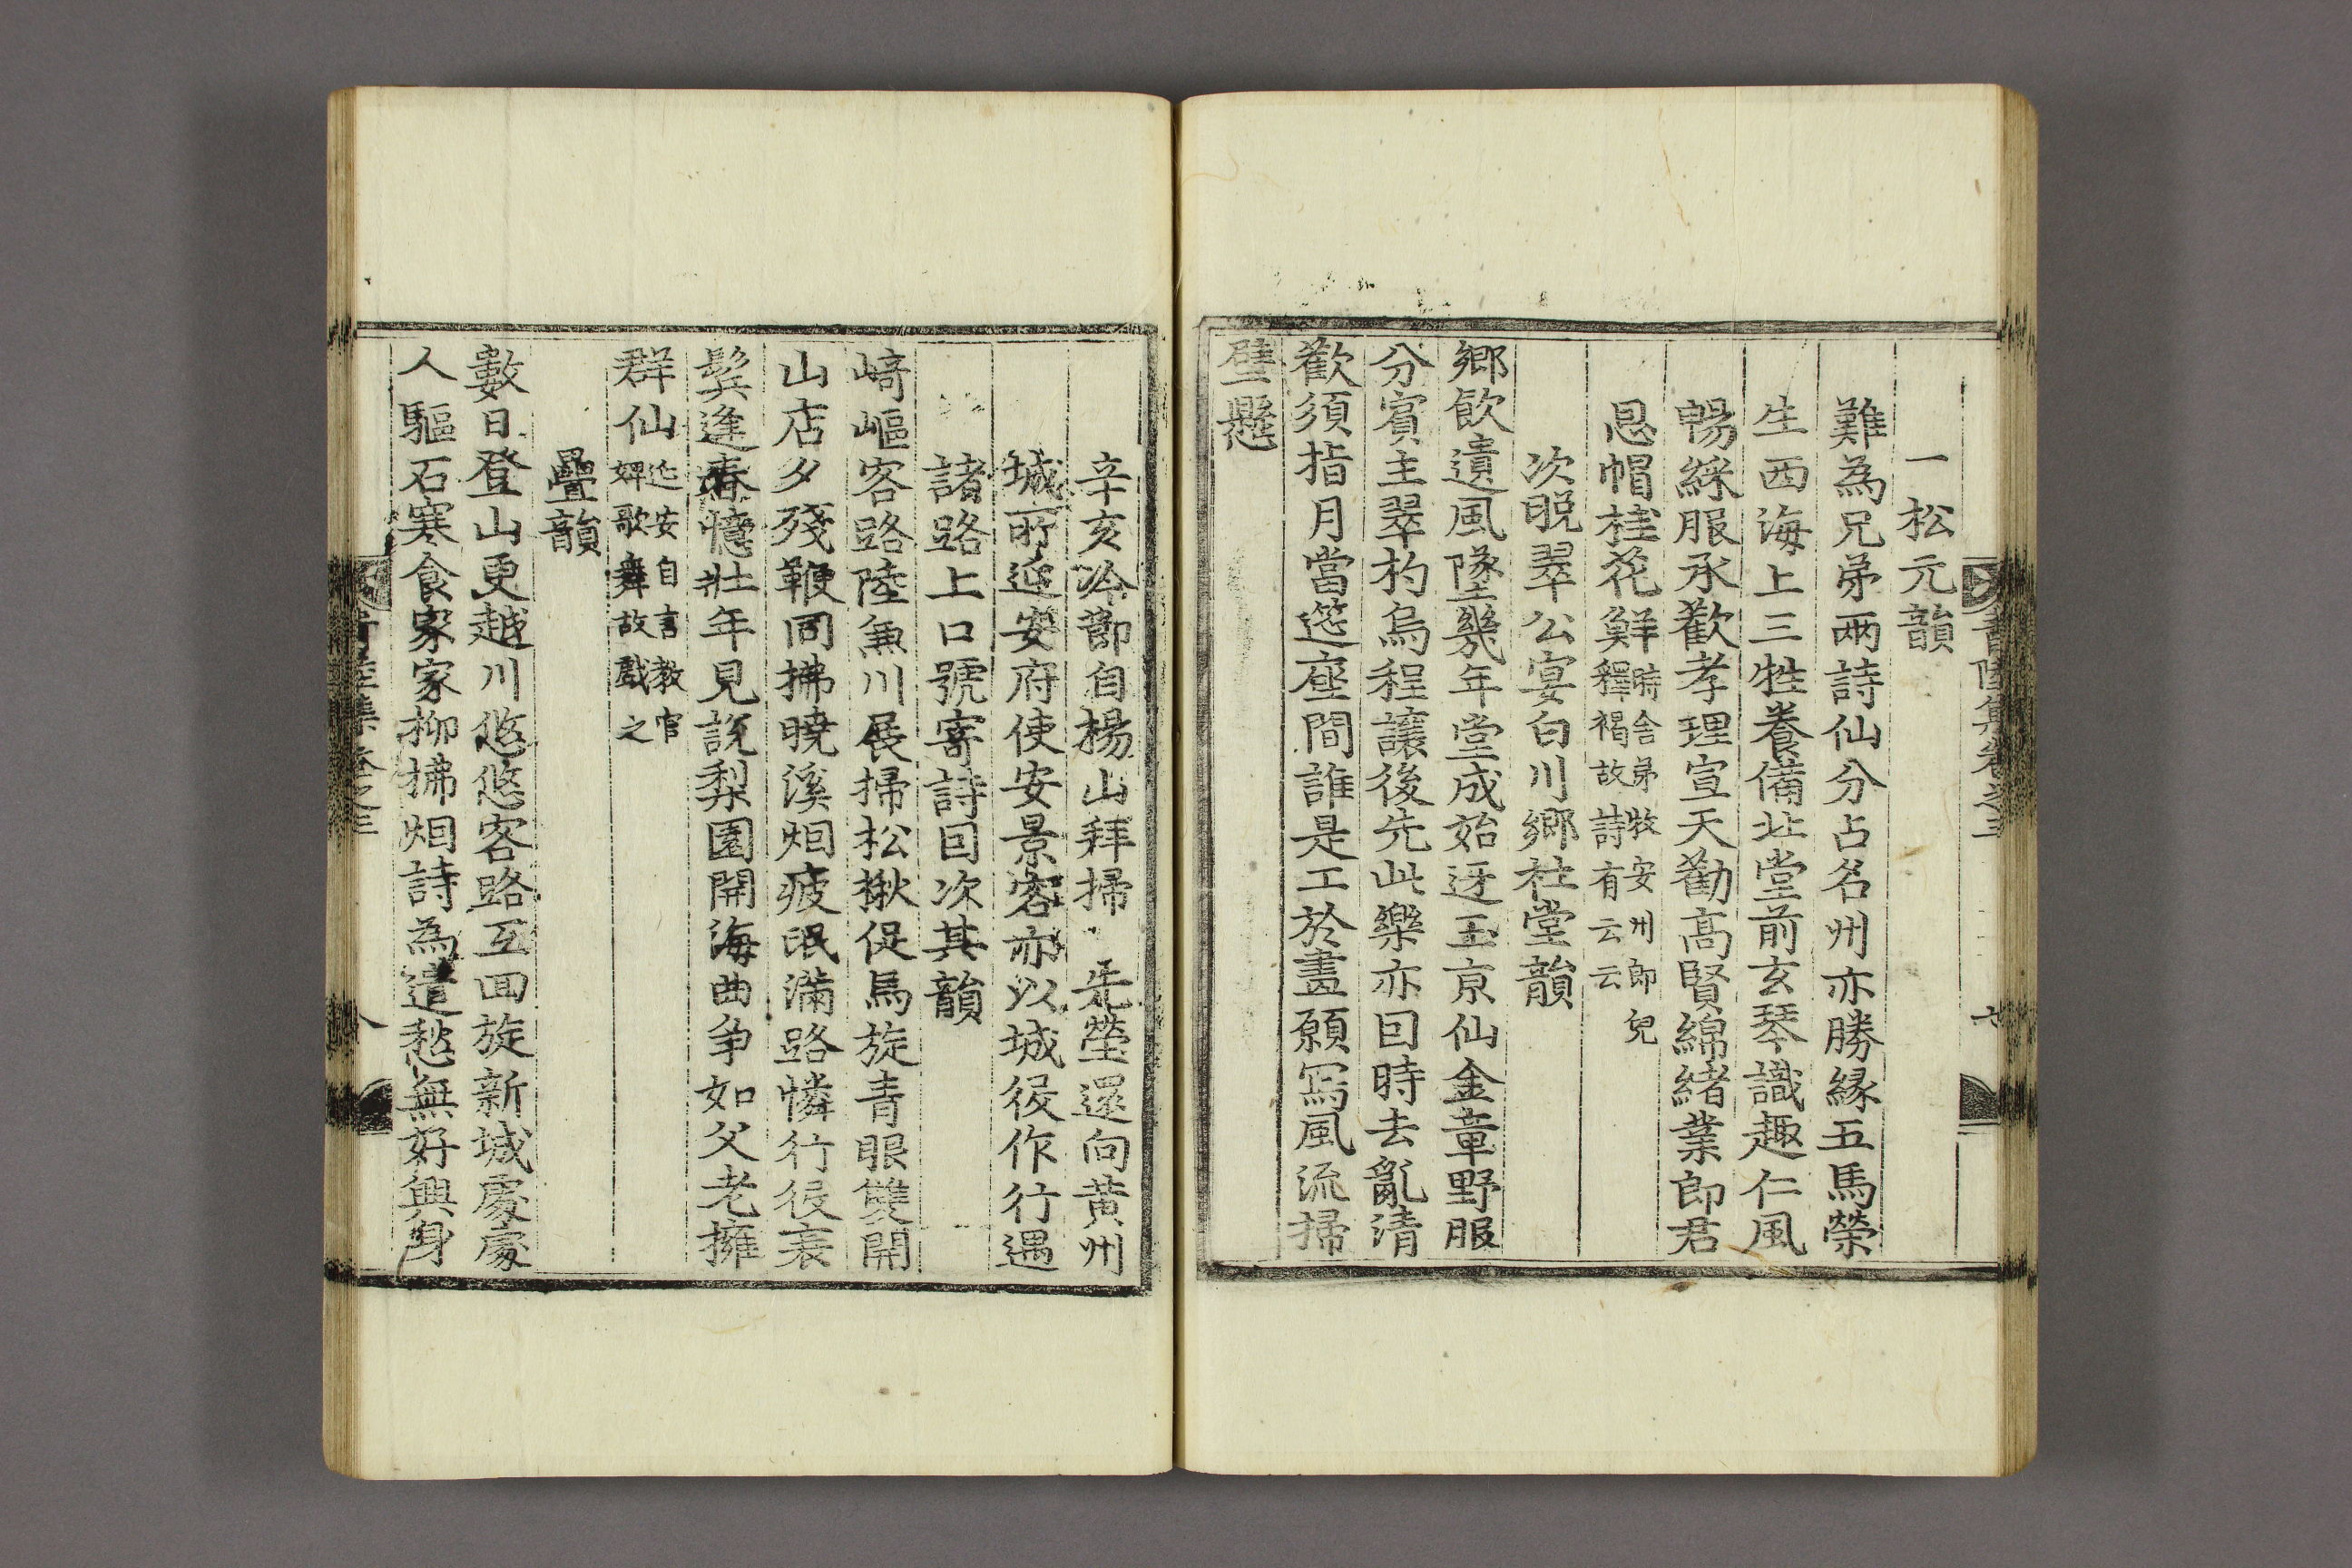 一松元韻
難為兄弟兩詩仙分占名州亦勝緣五馬榮
生西海上三牲養備北堂前玄琴識趣仁風
暢綵服承歡孝理宣天勸高賢綿緒業郎君
恩帽桂花鮮時舍弟牧安州郎兒
釋褐故詩有云云
次晩翠公宴白川鄉社堂韻
鄉飮遺風墜幾年堂成始迓玉京仙金章野服
分賓主翠杓烏程讓後先此樂亦回時去亂淸
歡須指月當筵座間誰是工於畫願寫風流掃
壁懸
辛亥冷節自楊山拜掃 先塋還向黃州
城所延安府使安景容亦以城役作行遇
諸路上口號寄詩回次其韻
崎嶇客路陸兼川展掃松楸促馬旋靑眼雙開
山店夕殘鞭同拂曉溪烟疲氓滿路憐行役衰
鬂逢春憶壯年見說梨園開海曲爭如父老擁
群仙延安自言敎官
婢歌舞故戱之
疊韻
數日登山更越川悠悠客路互回旋新城處處
人驅石寒食家家柳拂烟詩為遣愁無好興身
卷之三
八